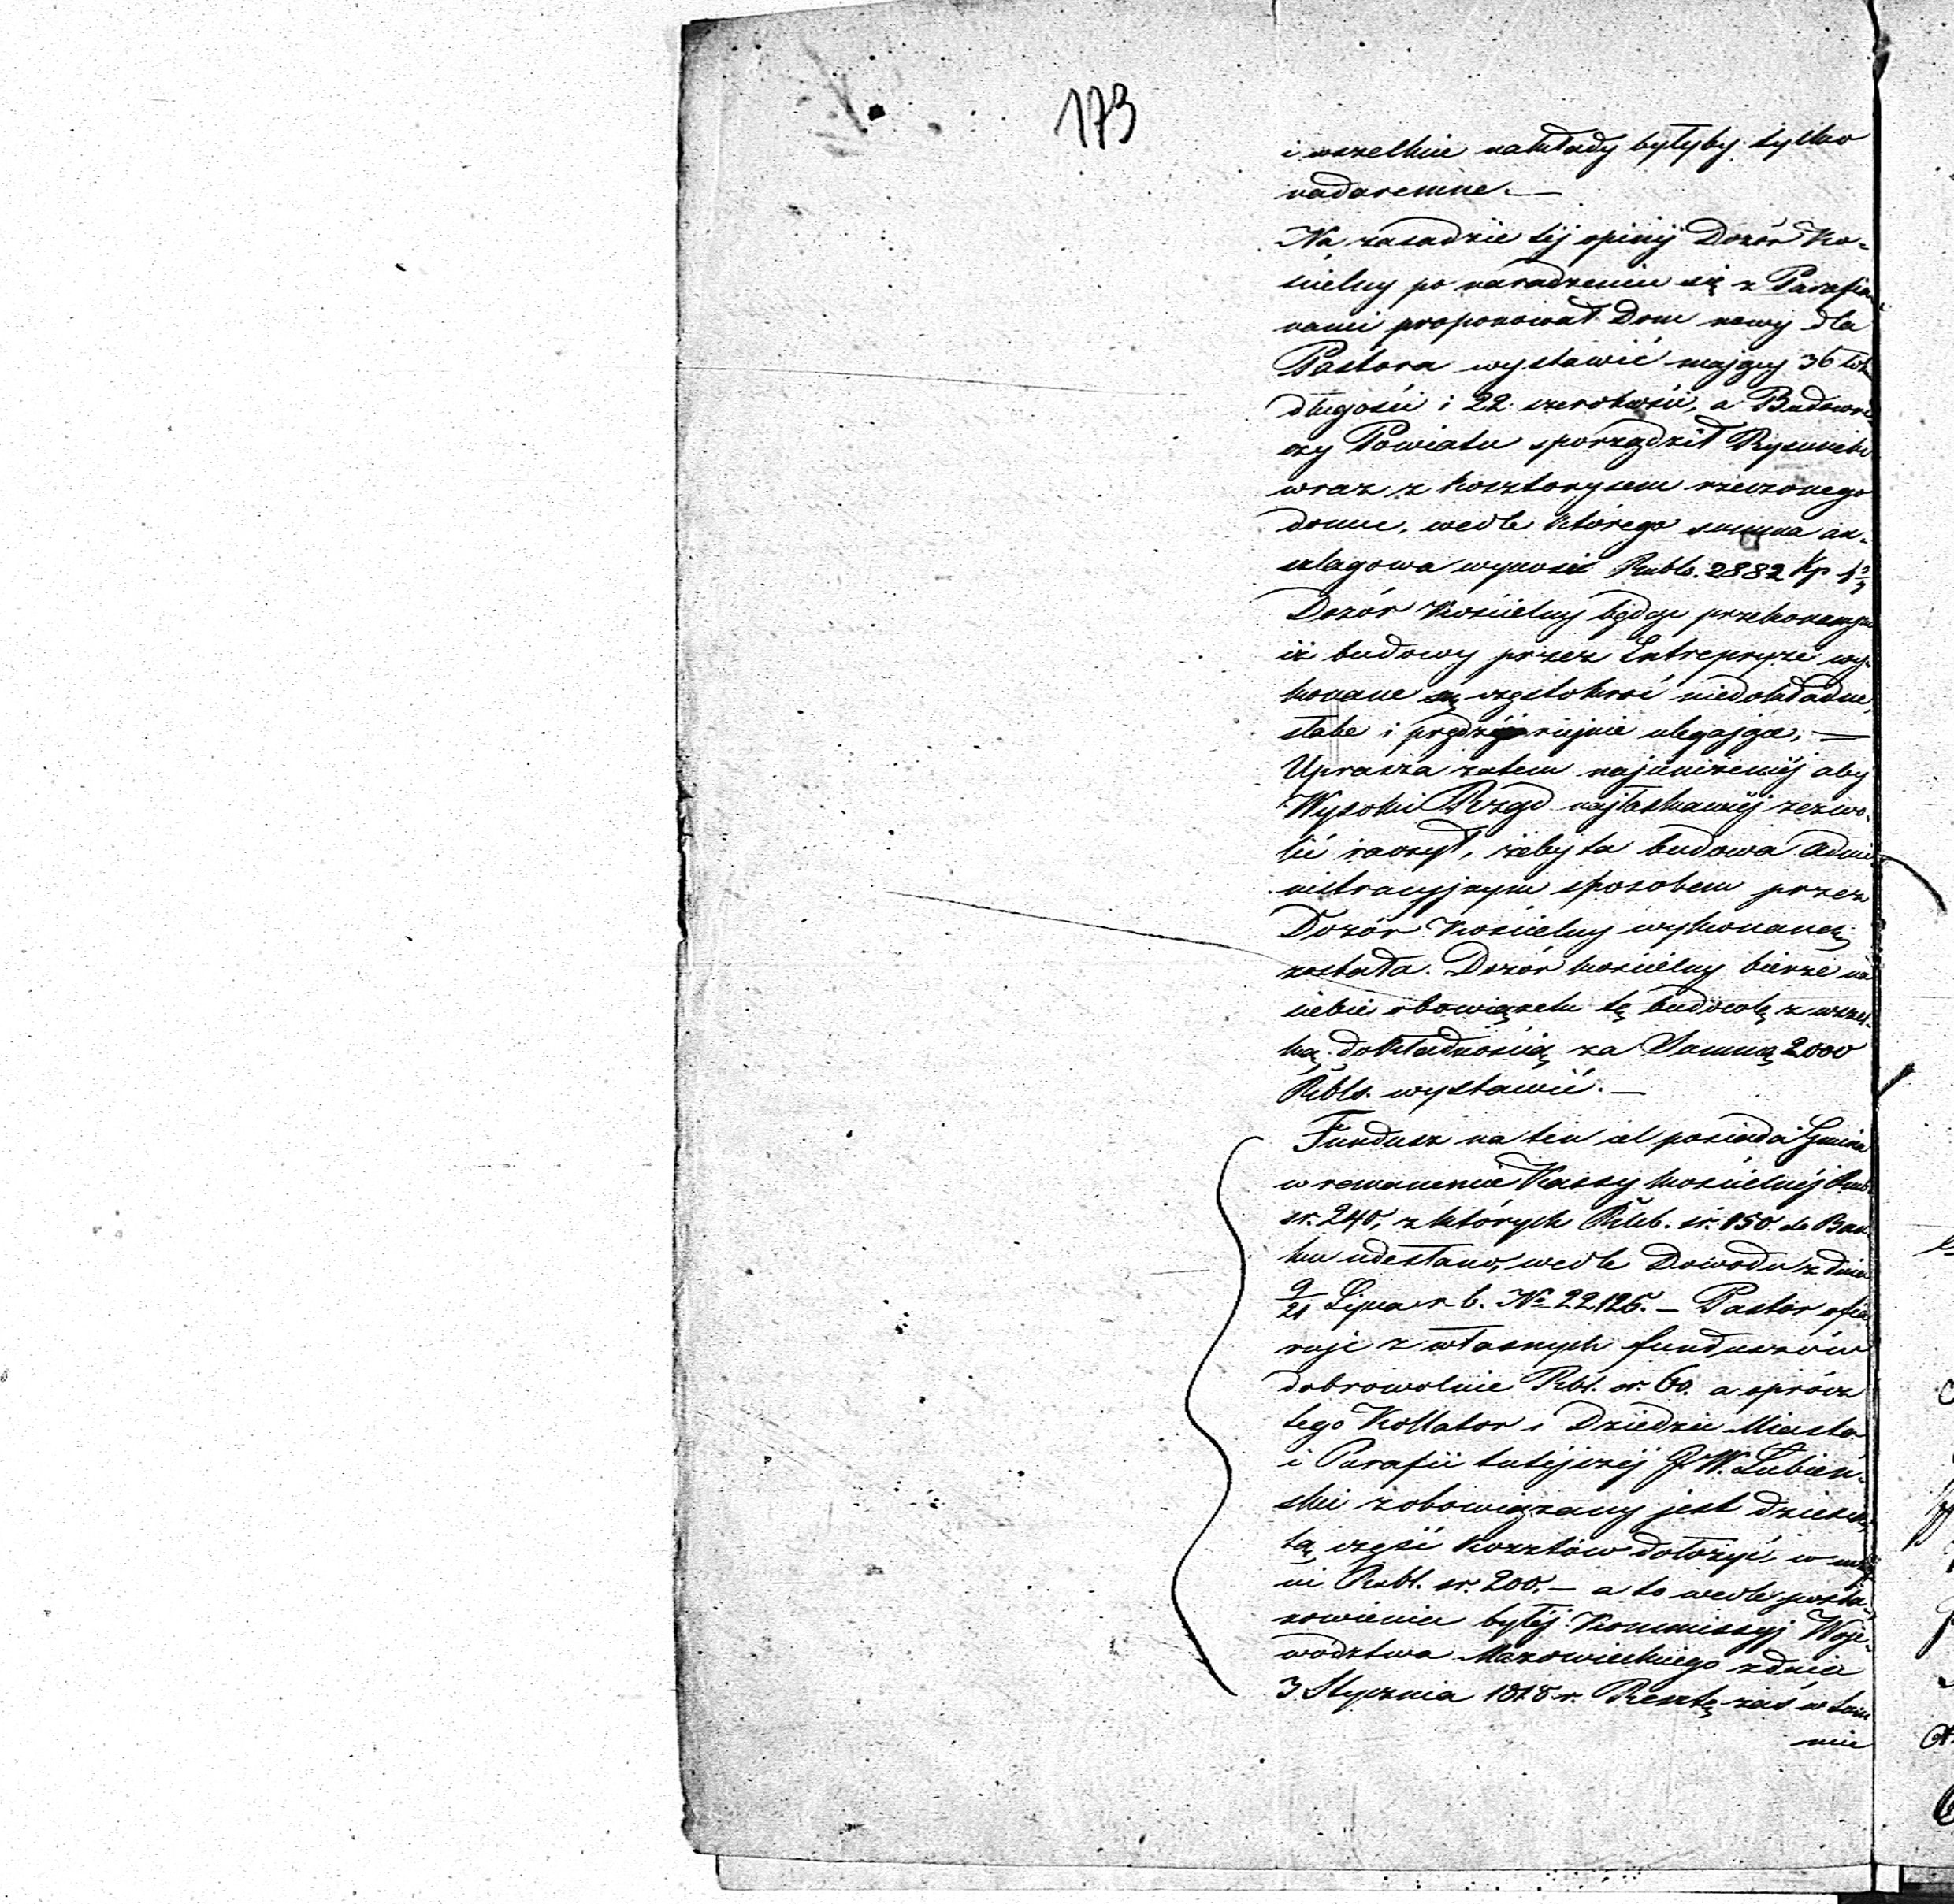 173
i wszelkie nakłady byłyby tylko
nadaremne. —
Na zasadzie téj opinij Dozór Ko-
ścielny po naradzeniu się z Parafia-
nami proponował Dom nowy dla
Pastora wystawić mający 36 łok.
długości i 22 szerokości, a Budowni-
czy Powiatu sporządził Rysunek
wraz z kosztorysem rzeczonego
domu, wedle którego summa an-
szlagowa wynosi Rubls. 2882 Kp
Dozór Kościelny będąc przekonanym
iż budowy przez Entrepryze wy-
konane są częstokroć niedokładne,
słabe i prędzéj ruinie ulegające, —
Uprasza zatem najuniżeniéj aby
Wysoki Rząd najłaskawiéj zezwo-
lić raczył, żeby ta budowa admi-
nistracyjnym sposobem przez
Dozór Kościelny wykonaną
została. Dozór kościelny bierze na
siebie obowiązek tę budowlę z wszel-
ką dokładnością za Summę 2000
Rbls. wystawić. —
Fundusz na ten cel posiada Gmina
w remanencie Kassy kościelnéj Rub.
sr. 240, z których Rub. sr. 150. do Ban-
ku odesłano, wedle Dowodu z dnia
9/21 Lipca r. b. No 22,125. — Pastor ofia-
ruje z własnych funduszów
dobrowolnie Rbl. sr. 60. a oprócz
tego Kollator i Dziedzic Miasta
i Parafii tutéjszéj JW. Łubień-
ski zobowiązany jest dziesią-
tą część kosztów dołożyć, w
ci Rubl. sr. 200. — a to wedle posta-
nowienia byłéj Kommissyj Woje-
wodztwa Mazowieckiego z dnia
3 Stycznia 1818 r. Resztę zaś w sum
mie